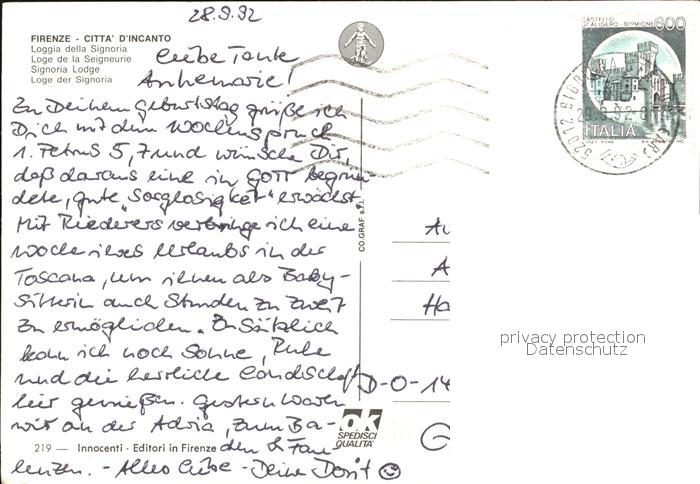 28.9.92
FIRENZE - CITTA' D'INCANTO
Loggia della Signoria
Loge de la Seigneurie
Signoria Lodge
Loge der Signoria
Liebe Tante
Annemarie!
Zu Deinem Geburtstag grüße ich
Dich mit dem Wochenspruch
1. Petrus 5,7 und wünsche Dir,
daß daraus eine in GOTT begrün
dete, gute "Sorglosigkeit" erwächst.
Mit Riederers verbringe ich eine
Woche ihres Urlaubs in der
Toscana, um ihnen als Baby-
Sitterin auch Stunden zu zweit
zu ermöglichen. Zusätzlich
kann ich noch Sonne, Ruhe
und die herrliche Landschaft
hier genießen. Gestern waren
wir an der Adria, zum Ba-
den & Fau-
lenzen. - Alles Liebe - Deine Dorit
219 — Innocenti - Editori in Firenze
CO.GRAF s.r.l.
ok
SPEDISCI
QUALITA'
CASTELLO
SCALIGERO - SIRMIONE 600
ITALIA
Au
A
Ha
D-O-14
G
privacy protection
Datenschutz